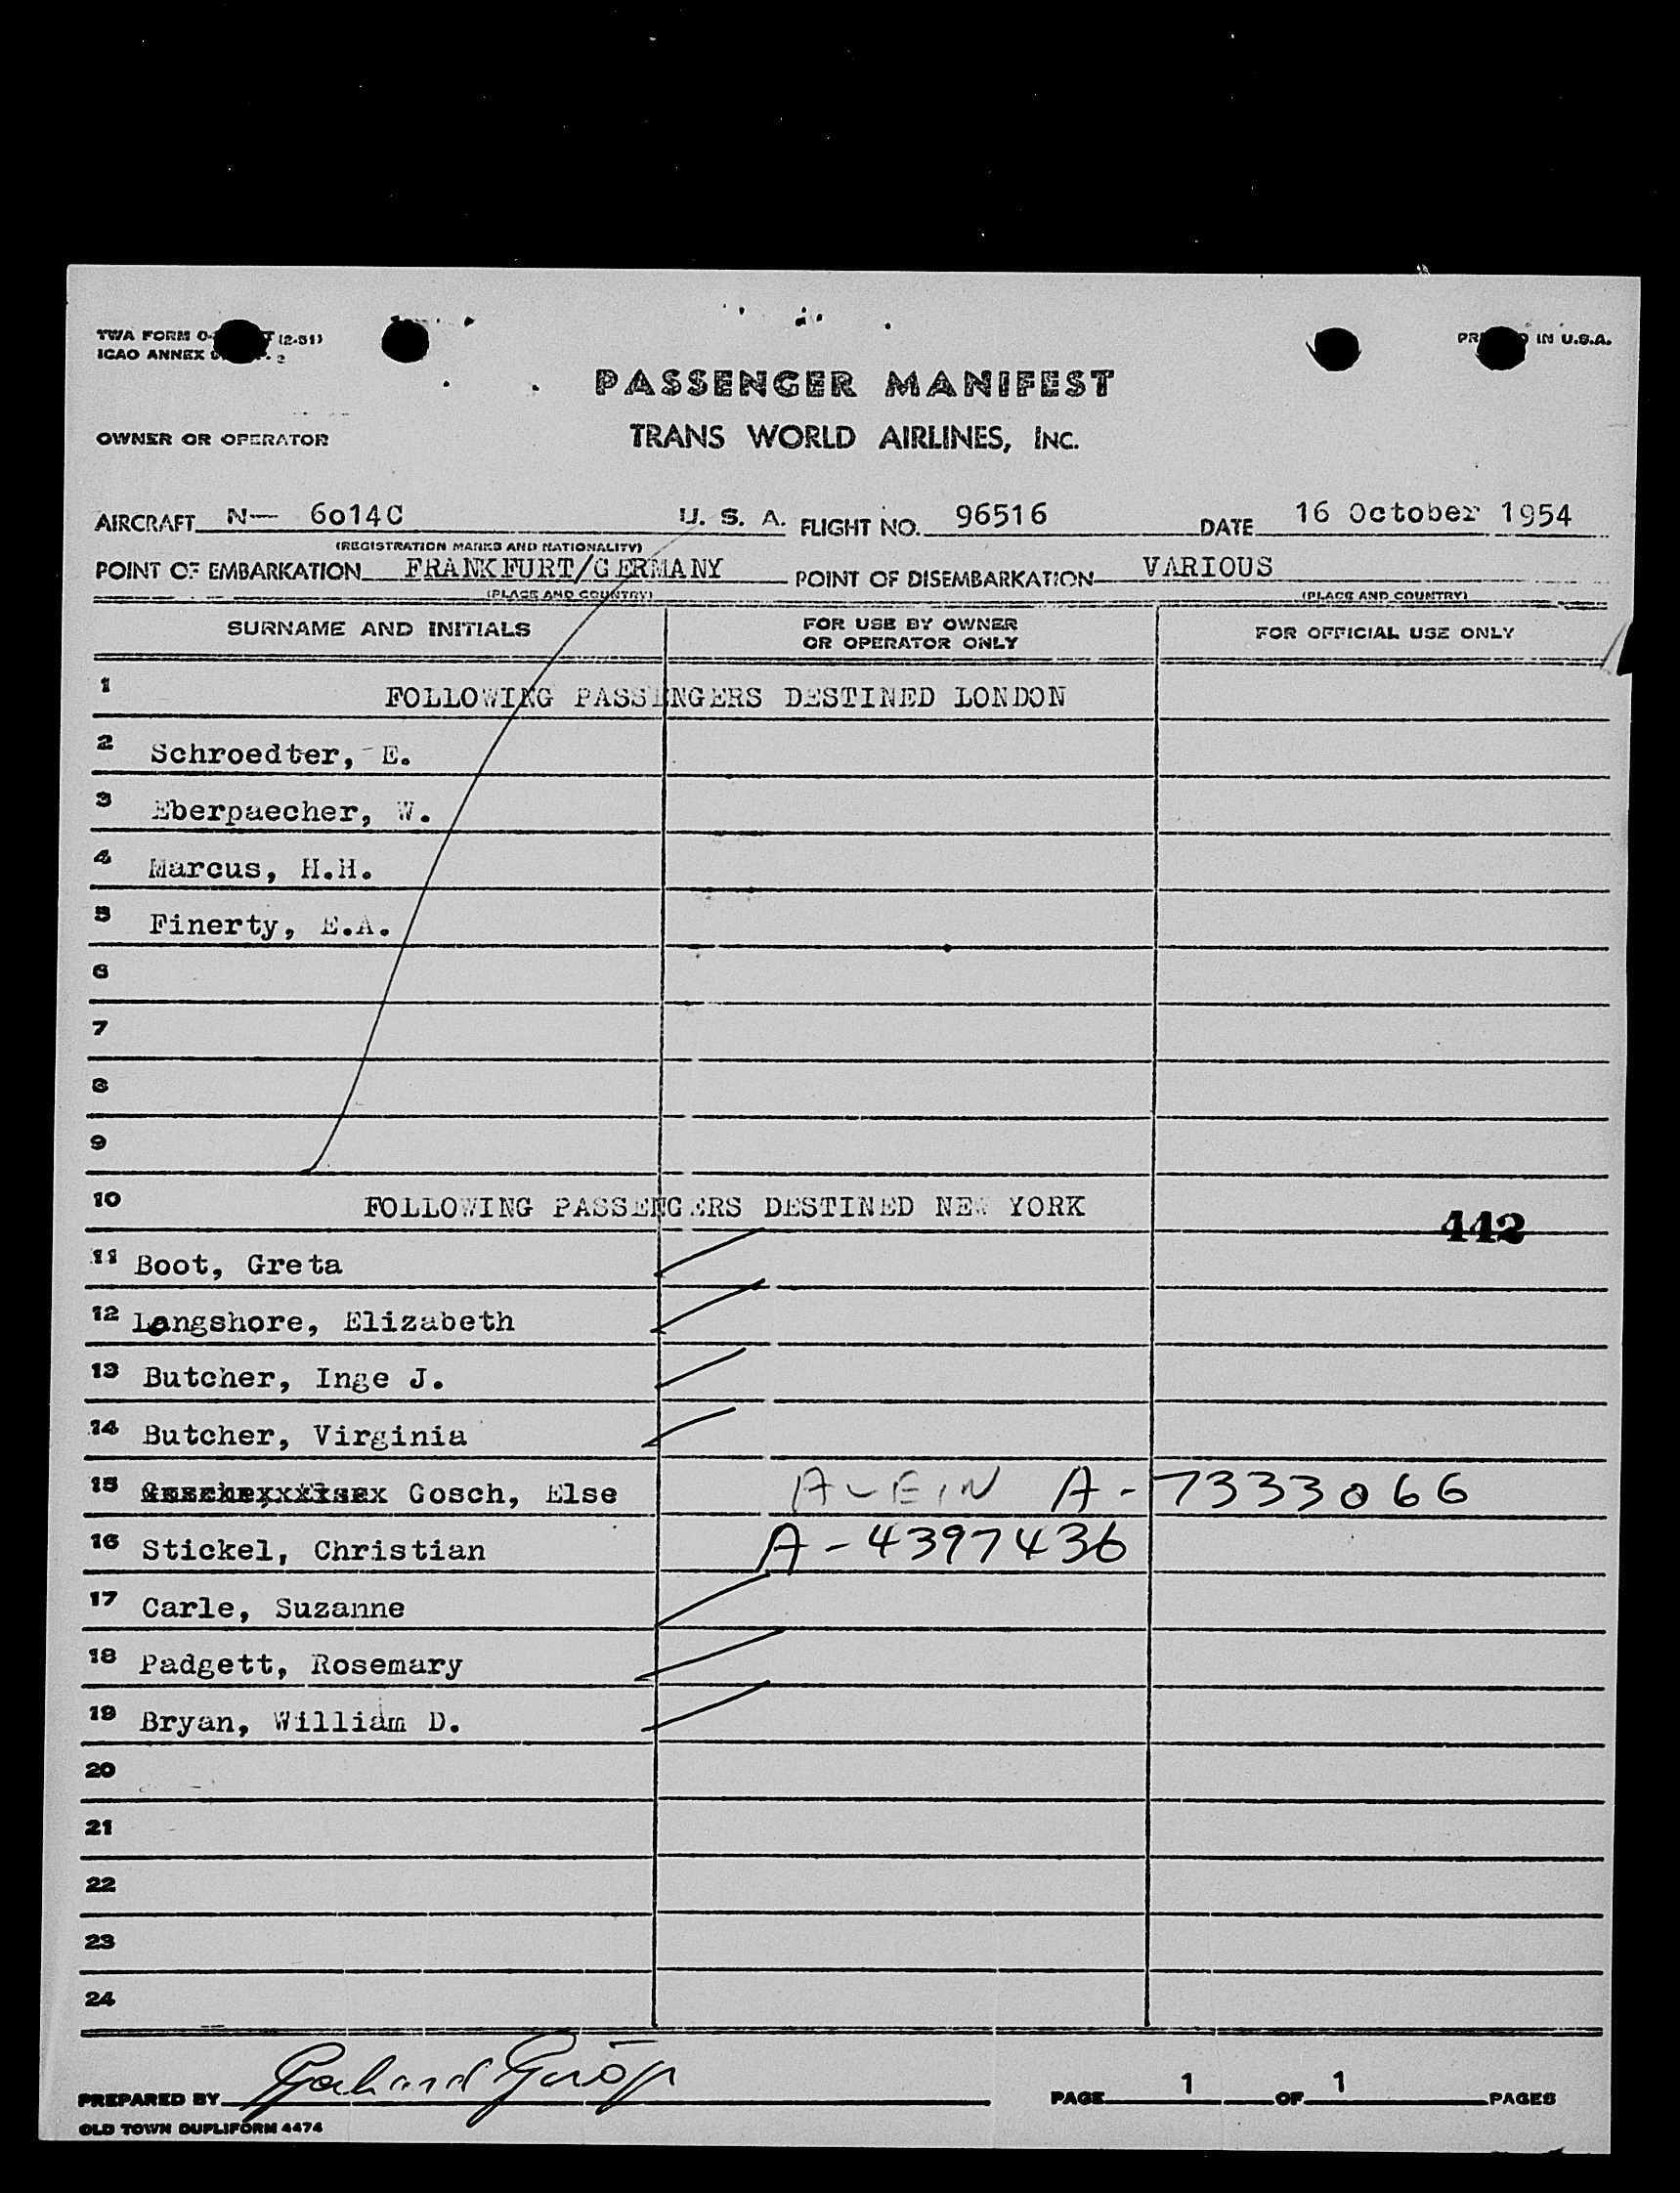 TWA FORM (2-51)
ICAO ANNEX 2
IN U.S.A.
PASSENGER MANIFEST
OWNER OR OPERATOR TRANS WORLD AIRLINES, INC.
AIRCRAFT N— 6o14C U. S. A. FLIGHT NO. 96516 DATE 16 October 1954
(REGISTRATION MARKS AND NATIONALITY)
POINT OF EMBARKATION FRANKFURT/GERMANY POINT OF DISEMBARKATION VARIOUS
(PLACE AND COUNTRY) (PLACE AND COUNTRY)
SURNAME AND INITIALS FOR USE BY OWNER OR OPERATOR ONLY FOR OFFICIAL USE ONLY
1 FOLLOWING PASSENGERS DESTINED LONDON
2 Schroedter, E.
3 Eberpaecher, W.
4 Marcus, H.H.
5 Finerty, E.A.
6
7
8
9
10 FOLLOWING PASSENGERS DESTINED NEW YORK
442
11 Boot, Greta
12 Langshore, Elizabeth
13 Butcher, Inge J.
14 Butcher, Virginia
15 Gosch, Else A-7333066
16 Stickel, Christian A-4397436
17 Carle, Suzanne
18 Padgett, Rosemary
19 Bryan, William D.
20
21
22
23
24
PREPARED BY PAGE 1 OF 1 PAGES
OLD TOWN DUPLIFORM 4474